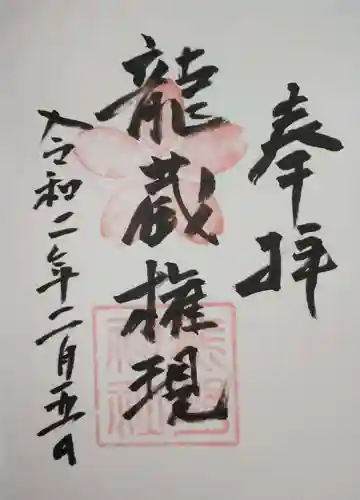 奉拝
龍蔵権現
令和二年二月五日